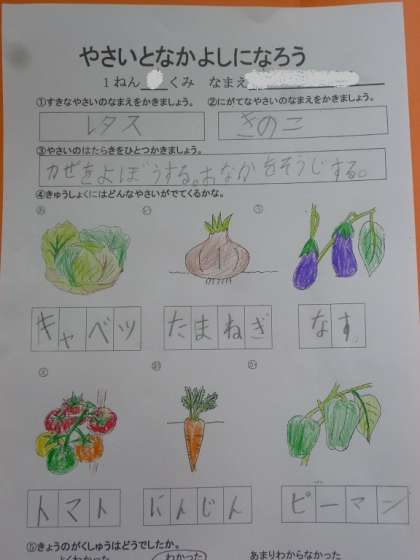 やさいとなかよしになろう
1ねん くみ なまえ
①すきなやさいのなまえをかきましょう。 ②にがてなやさいのなまえをかきましょう。
レタス きのこ
③やさいのはたらきをひとつかきましょう。
カぜをよぼうする。おなかをそうじする。
④きゅうしょくにはどんなやさいがでてくるかな。
キャベツ たまねぎ なす
トマト にんじん ピーマン
⑤きょうのがくしゅうはどうでしたか。
よくわかった わかった あまりわからなかった